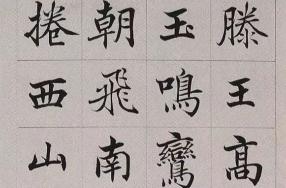 滕王高
玉鳴鸞
朝飛南
捲西山